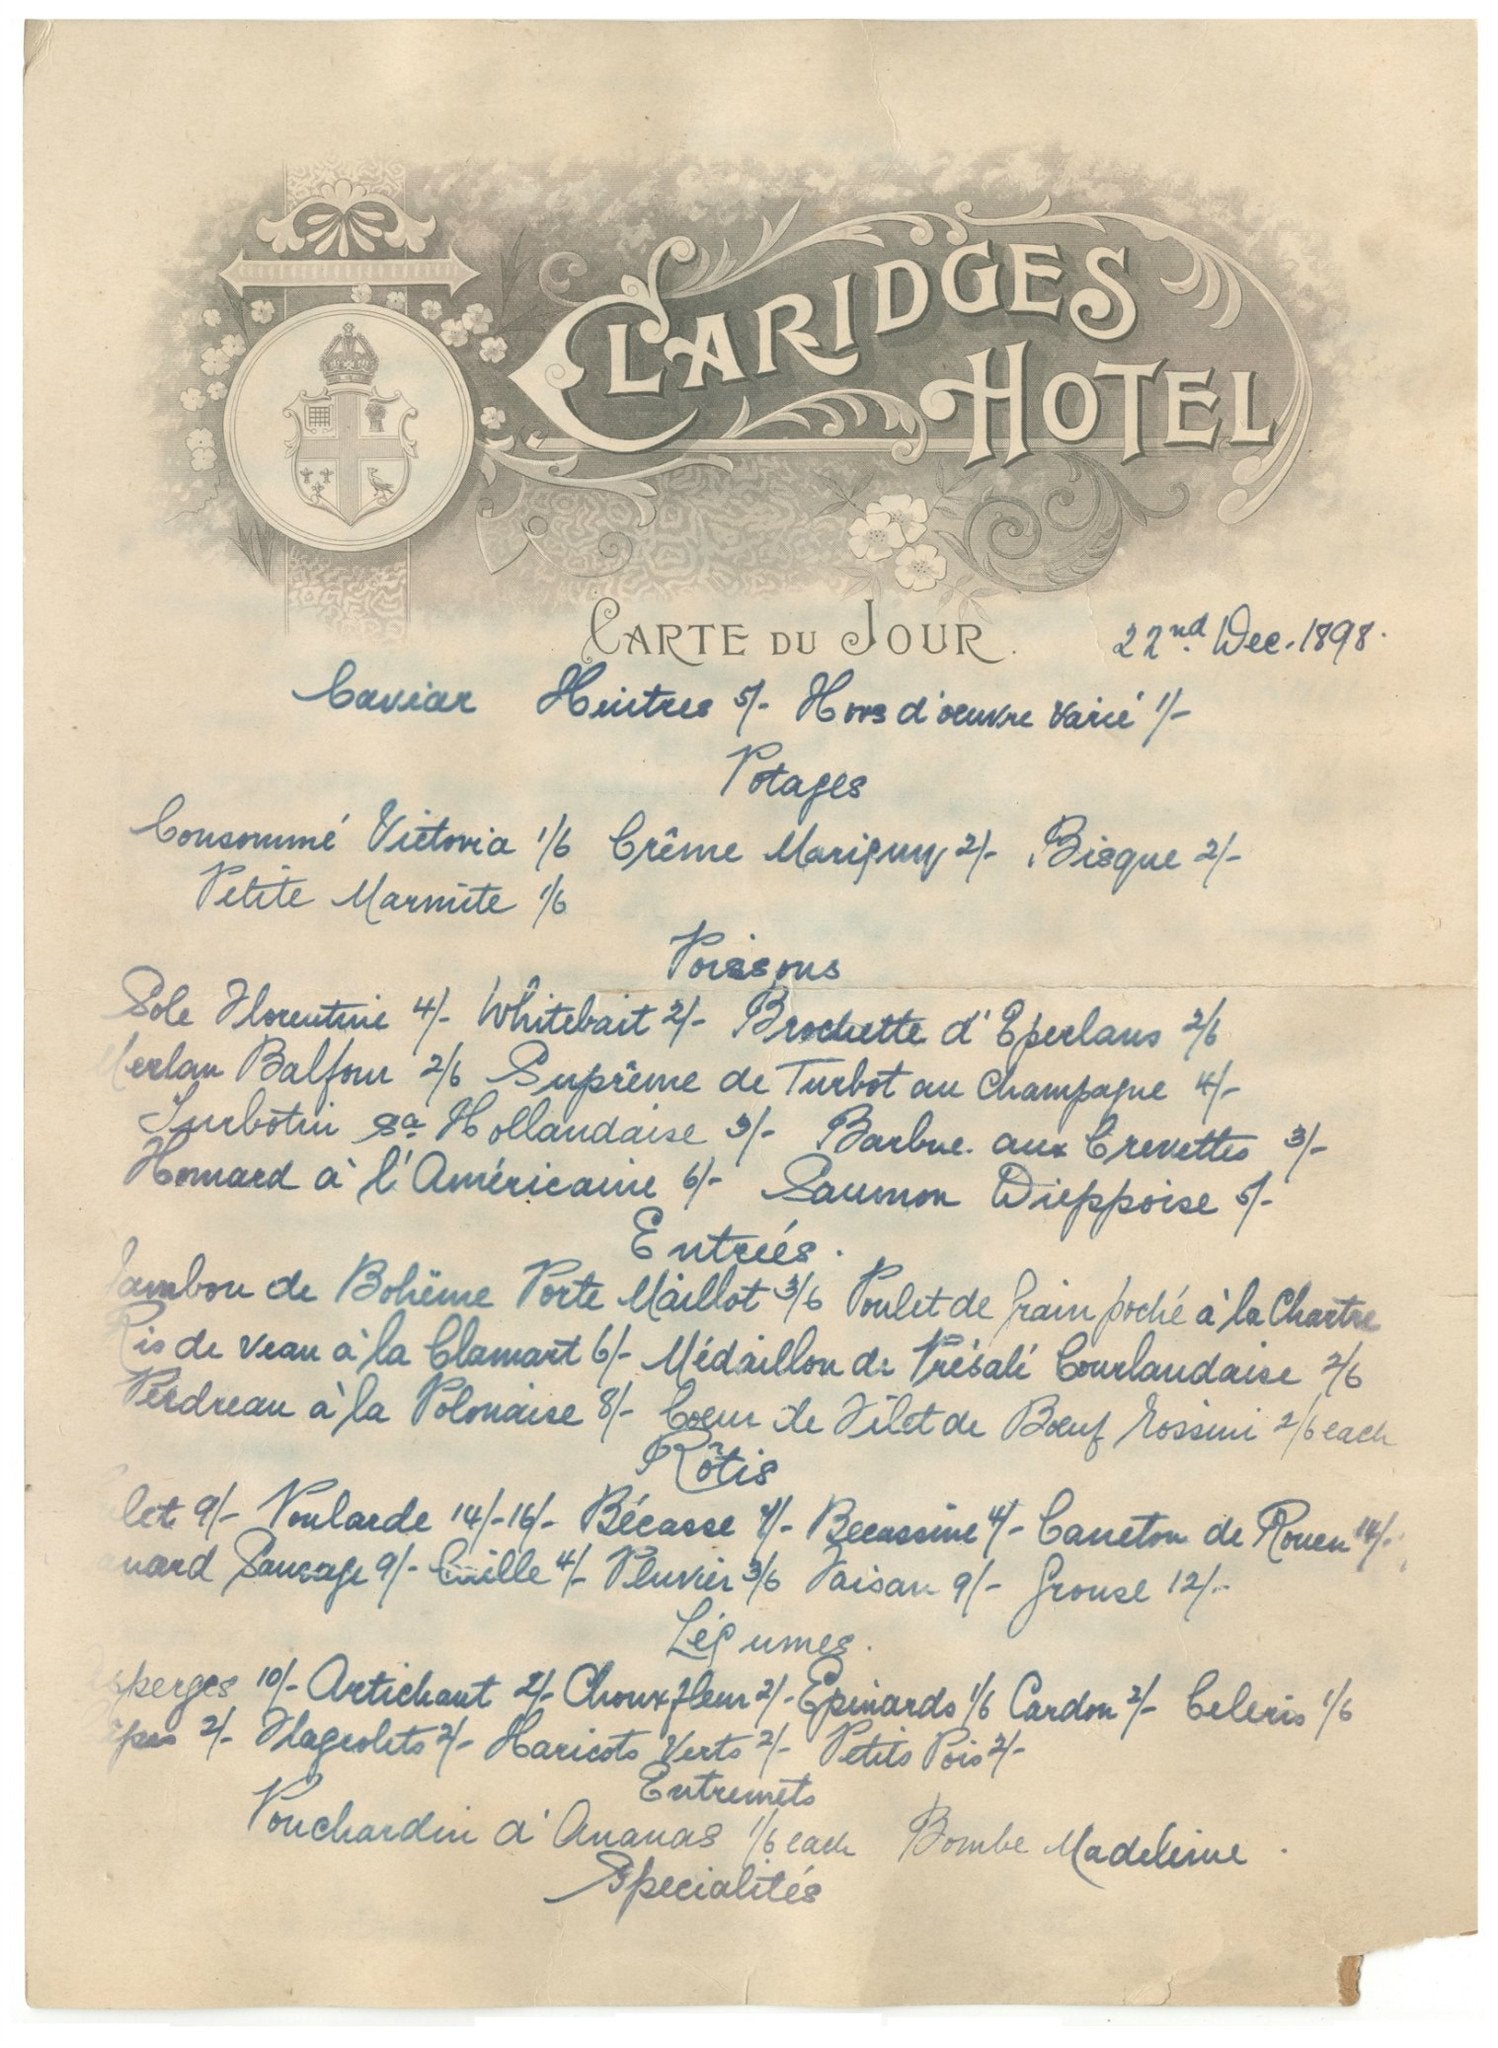 CLARIDGES
HOTEL
CARTE DU JOUR. 22nd Dec. 1898.
Caviar Huitres 5/- Hors d'oeuvre varié 1/-
Potages
Consommé Victoria 1/6 Crême Marigny 2/- Bisque 2/-
Petite Marmite 1/6
Poissons
Sole Florentine 4/- Whitebait 2/- Brochette d'Eperlans 2/6
Merlan Balfour 2/6 Suprême de Turbot au Champagne 4/-
Turbotin sce Hollandaise 3/- Barbue aux Crevettes 3/-
Homard à l'Américaine 6/- Saumon Dieppoise 5/-
Entreés.
Jambon de Bohême Porte Maillot 3/6 Poulet de grain poché à la Chartre
Ris de veau à la Clamart 6/- Médaillon de Présalé Courlandaise 2/6
Perdreau à la Polonaise 8/- Coeur de Filet de Bœuf Rossini 2/6 each
Rôtis
let 9/- Poularde 14/-16/- Bécasse Becassine 4/- Canneton de Rouen
nard Sauvage 9/- Caille 4/- Pluvier 3/6 Faisan 9/- Grouse 12/-
Légumes.
sperges 10/- Artichaut 2/- Chouxfleur 2/- Epinards 1/6 Cardon 2/- Celeris 1/6
èpes 2/- Flageolets 2/- Haricots Verts 2/- Petits Pois 2/-
Entremets
Pouchardin d'Ananas 1/6 each Bombe Madeleine.
Specialités